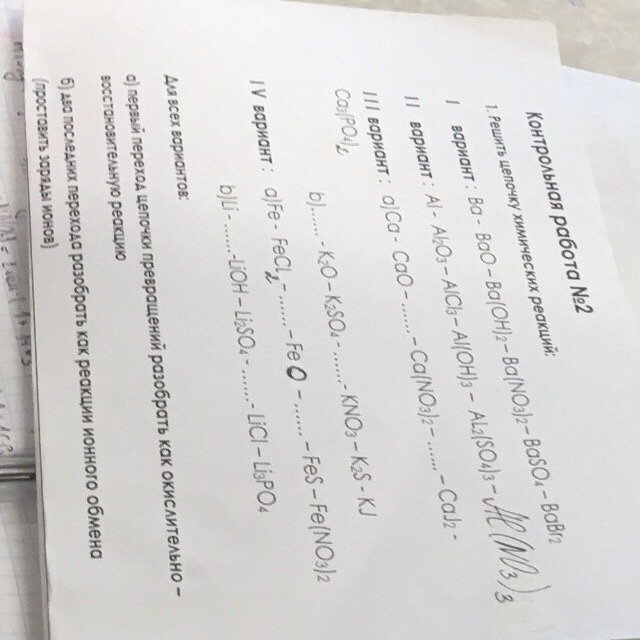 Контрольная работа №2
1. Решить цепочку химических реакций:
I вариант: Ba - BaO – Ba(OH)2 – Ba(NO3)2 – BaSO4 – BaBr2
II вариант: Al - Al2O3 – AlCl3 – Al(OH)3 – AL2(SO4)3 – Al(NO3)3
III вариант: а)Ca - CaO - ...... – Ca(NO3)2 – ...... – CaJ2 -
Ca3(PO)2
b)...... - K2O – K2SO4 - ...... – KNO3 – K2S - KJ
IV вариант: а)Fe - FeCL2 - ...... – FeO – ...... – FeS – Fe(NO3)2
b)Li - ...... -LiOH – Li2SO4 - ...... – LiCl – Li3PO4
Для всех вариантов:
а) первый переход цепочки превращений разобрать как окислительно –
восстановительную реакцию
б) два последних перехода разобрать как реакции ионного обмена
(проставить заряды ионов)